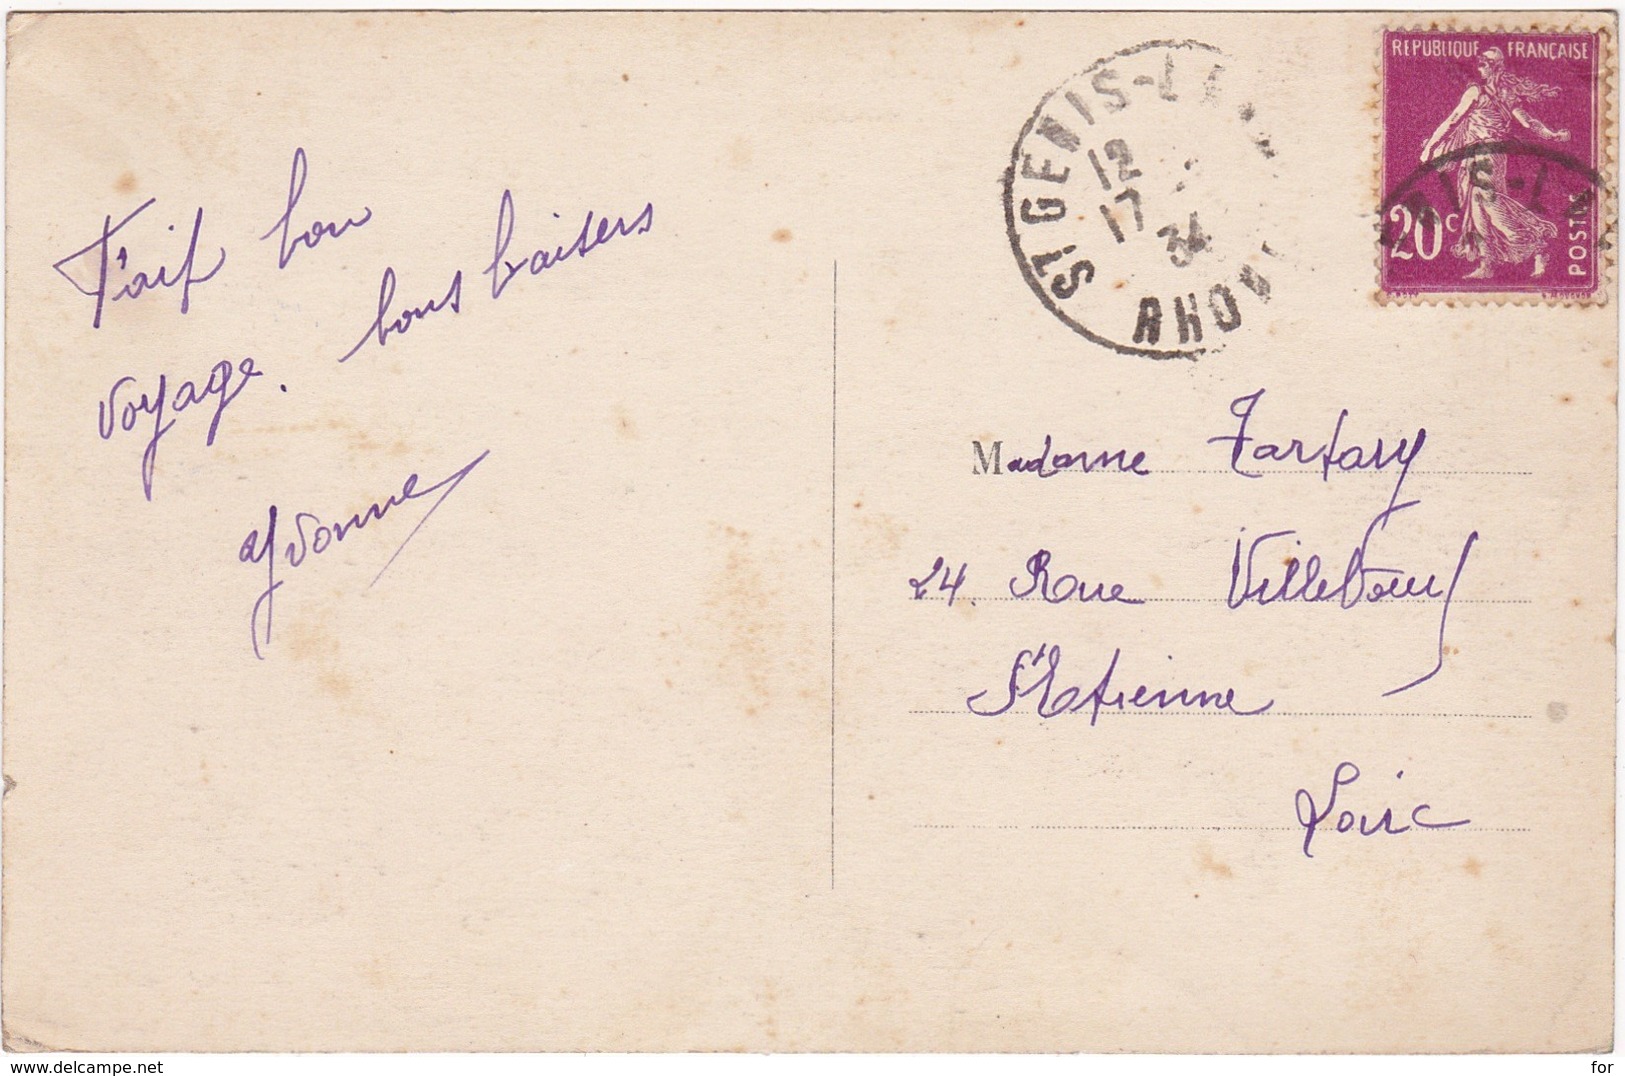 Fait bon
voyage. bons baisers
Yvonne
ST GENIS-LA
12
17
34
RHO
REPUBLIQUE FRANÇAISE
20c
POSTES
NIS-LA
Madame Tartary
24. Rue Villebœuf
St Etienne
Loire
www.delcampe.net
for